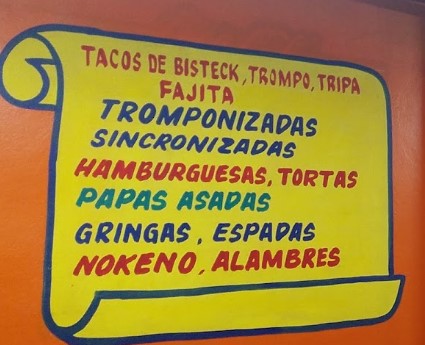 TACOS DE BISTECK, TROMPO, TRIPA
FAJITA
TROMPONIZADAS
SINCRONIZADAS
HAMBURGUESAS, TORTAS
PAPAS ASADAS
GRINGAS, ESPADAS
NOKENO, ALAMBRES